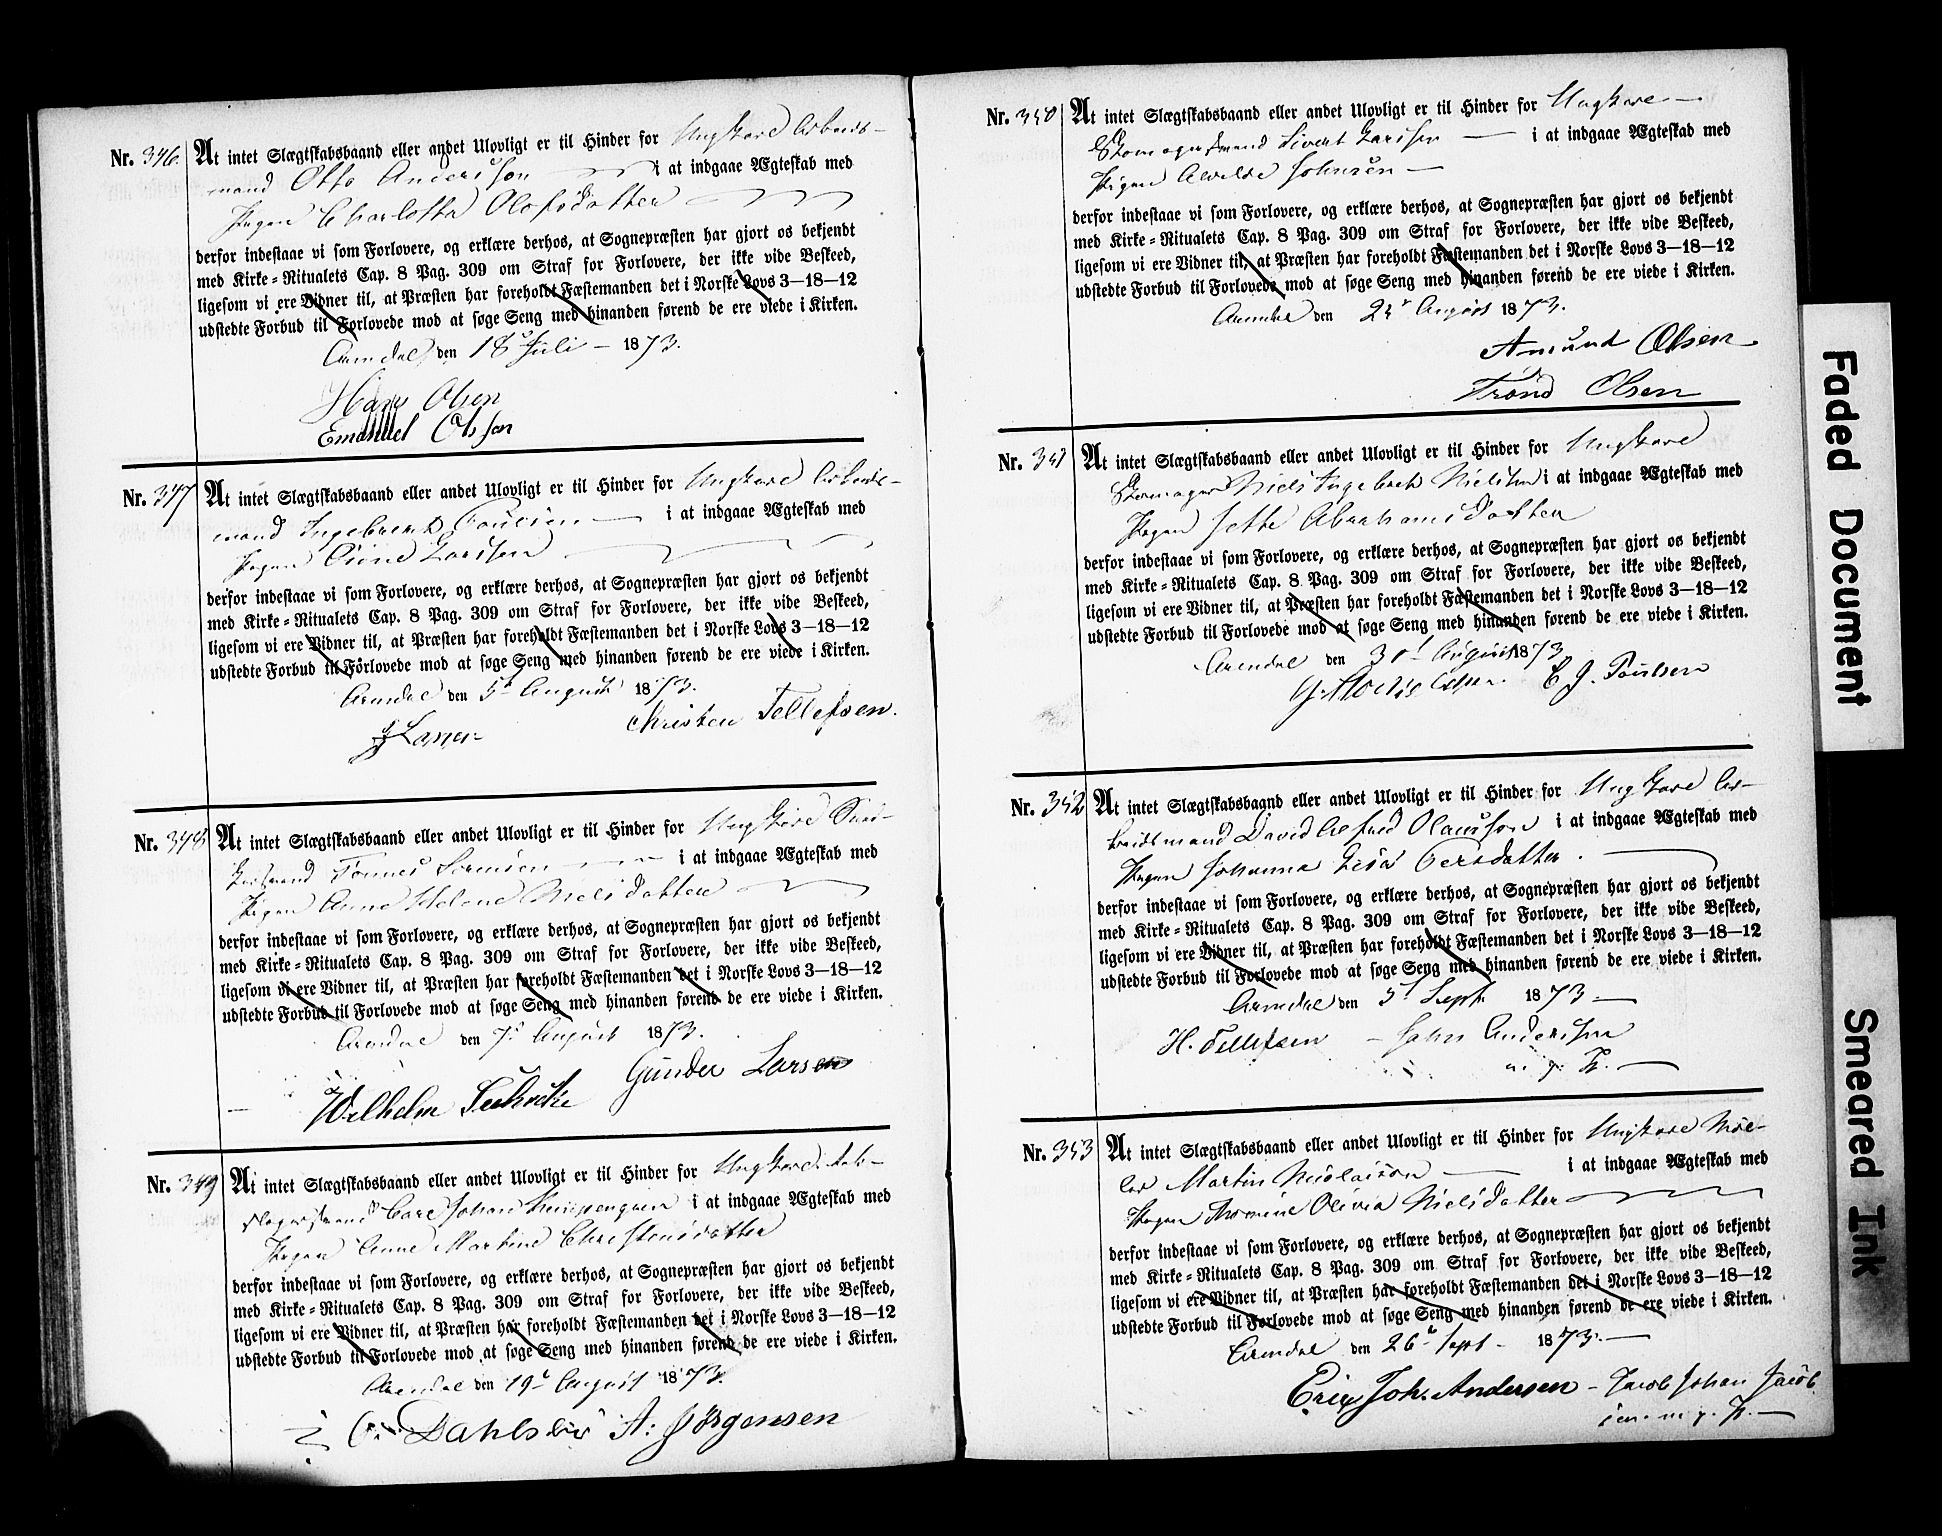 Nr. 346. At intet Slægtskabsbaand eller andet Ulovligt er til Hinder for Ungkarl Arbeids-
mand Otto Anderssen i at indgaae Ægteskab med
Pigen Charlotta Olofsdatter
derfor indestaae vi som Forlovere, og erklære derhos, at Sognepræsten har gjort os bekjendt
med Kirke-Ritualets Cap. 8 Pag. 309 om Straf for Forlovere, der ikke vide Beskeed,
ligesom vi ere Vidner til, at Præsten har foreholdt Fæstemanden det i Norske Lovs 3-18-12
udstedte Forbud til Forlovede mod at søge Seng med hinanden førend de ere viede i Kirken.
Arendal den 18 Juli 1873.
Hans Olsen
Emanuel Olssen
Nr. 347 At intet Slægtskabsbaand eller andet Ulovligt er til Hinder for Ungkarl Arbeids-
mand Ingebrect Poulsen i at indgaae Ægteskab med
Pigen Larssen
derfor indestaae vi som Forlovere, og erklære derhos, at Sognepræsten har gjort os bekjendt
med Kirke-Ritualets Cap. 8 Pag. 309 om Straf for Forlovere, der ikke vide Beskeed,
ligesom vi ere Vidner til, at Præsten har foreholdt Fæstemanden det i Norske Lovs 3-18-12
udstedte Forbud til Forlovede mod at søge Seng med hinanden førend de ere viede i Kirken.
Arendal den 5t August 1873.
Christen Tellefsen.
Nr. 348 At intet Slægtskabsbaand eller andet Ulovligt er til Hinder for Ungkarl
Tønnes Sørensen i at indgaae Ægteskab med
Pigen Anne Helene Nielsdatter
derfor indestaae vi som Forlovere, og erklære derhos, at Sognepræsten har gjort os bekjendt
med Kirke-Ritualets Cap. 8 Pag. 309 om Straf for Forlovere, der ikke vide Beskeed,
ligesom vi ere Vidner til, at Præsten har foreholdt Fæstemanden det i Norske Lovs 3-18-12
udstedte Forbud til Forlovede mod at søge Seng med hinanden førend de ere viede i Kirken.
Arendal den 7de August 1873.
Gunder Larsen
Wilhelm
Nr. 349 At intet Slægtskabsbaand eller andet Ulovligt er til Hinder for Ungkarl
Carl Johan i at indgaae Ægteskab med
Pigen Anne Martine Christensdatter
derfor indestaae vi som Forlovere, og erklære derhos, at Sognepræsten har gjort os bekjendt
med Kirke-Ritualets Cap. 8 Pag. 309 om Straf for Forlovere, der ikke vide Beskeed,
ligesom vi ere Vidner til, at Præsten har foreholdt Fæstemanden det i Norske Lovs 3-18-12
udstedte Forbud til Forlovede mod at søge Seng med hinanden førend de ere viede i Kirken.
Arendal den 19de August 1873.
A. Jørgensen
Nr. 350 At intet Slægtskabsbaand eller andet Ulovligt er til Hinder for Ungkarl
Skomagersvend Sivert Larssen i at indgaae Ægteskab med
Pigen Alvilde Johnsen
derfor indestaae vi som Forlovere, og erklære derhos, at Sognepræsten har gjort os bekjendt
med Kirke-Ritualets Cap. 8 Pag. 309 om Straf for Forlovere, der ikke vide Beskeed,
ligesom vi ere Vidner til, at Præsten har foreholdt Fæstemanden det i Norske Lovs 3-18-12
udstedte Forbud til Forlovede mod at søge Seng med hinanden førend de ere viede i Kirken.
Arendal den August 1873.
Amund Olsen
Trond Olsen
Nr. 351 At intet Slægtskabsbaand eller andet Ulovligt er til Hinder for Ungkarl
Skomager Niels Ingebret Nielsen i at indgaae Ægteskab med
Pigen Jette Abrahamsdatter
derfor indestaae vi som Forlovere, og erklære derhos, at Sognepræsten har gjort os bekjendt
med Kirke-Ritualets Cap. 8 Pag. 309 om Straf for Forlovere, der ikke vide Beskeed,
ligesom vi ere Vidner til, at Præsten har foreholdt Fæstemanden det i Norske Lovs 3-18-12
udstedte Forbud til Forlovede mod at søge Seng med hinanden førend de ere viede i Kirken.
Arendal den August 1873
E. J. Poulsen
Nr. 352 At intet Slægtskabsbaand eller andet Ulovligt er til Hinder for Ungkarl Ar-
beidsmand David Alfred Olausson i at indgaae Ægteskab med
Pigen Johanna Lisa Persdatter.
derfor indestaae vi som Forlovere, og erklære derhos, at Sognepræsten har gjort os bekjendt
med Kirke-Ritualets Cap. 8 Pag. 309 om Straf for Forlovere, der ikke vide Beskeed,
ligesom vi ere Vidner til, at Præsten har foreholdt Fæstemanden det i Norske Lovs 3-18-12
udstedte Forbud til Forlovede mod at søge Seng med hinanden førend de ere viede i Kirken.
Arendal den Sept 1873
H. Tellefsen - John Anderssen
m. p. P.
Nr. 353 At intet Slægtskabsbaand eller andet Ulovligt er til Hinder for Ungkarl Mæg-
ler Martin Nicolaison i at indgaae Ægteskab med
Pigen Thomine Olivia Nielsdatter
derfor indestaae vi som Forlovere, og erklære derhos, at Sognepræsten har gjort os bekjendt
med Kirke-Ritualets Cap. 8 Pag. 309 om Straf for Forlovere, der ikke vide Beskeed,
ligesom vi ere Vidner til, at Præsten har foreholdt Fæstemanden det i Norske Lovs 3-18-12
udstedte Forbud til Forlovede mod at søge Seng med hinanden førend de ere viede i Kirken.
Arendal den 26de Sept. 1873.
Eric Joh. Andersen - Jacob Johan Jacob
sen. m. p. P.
Faded Document
Smeared Ink